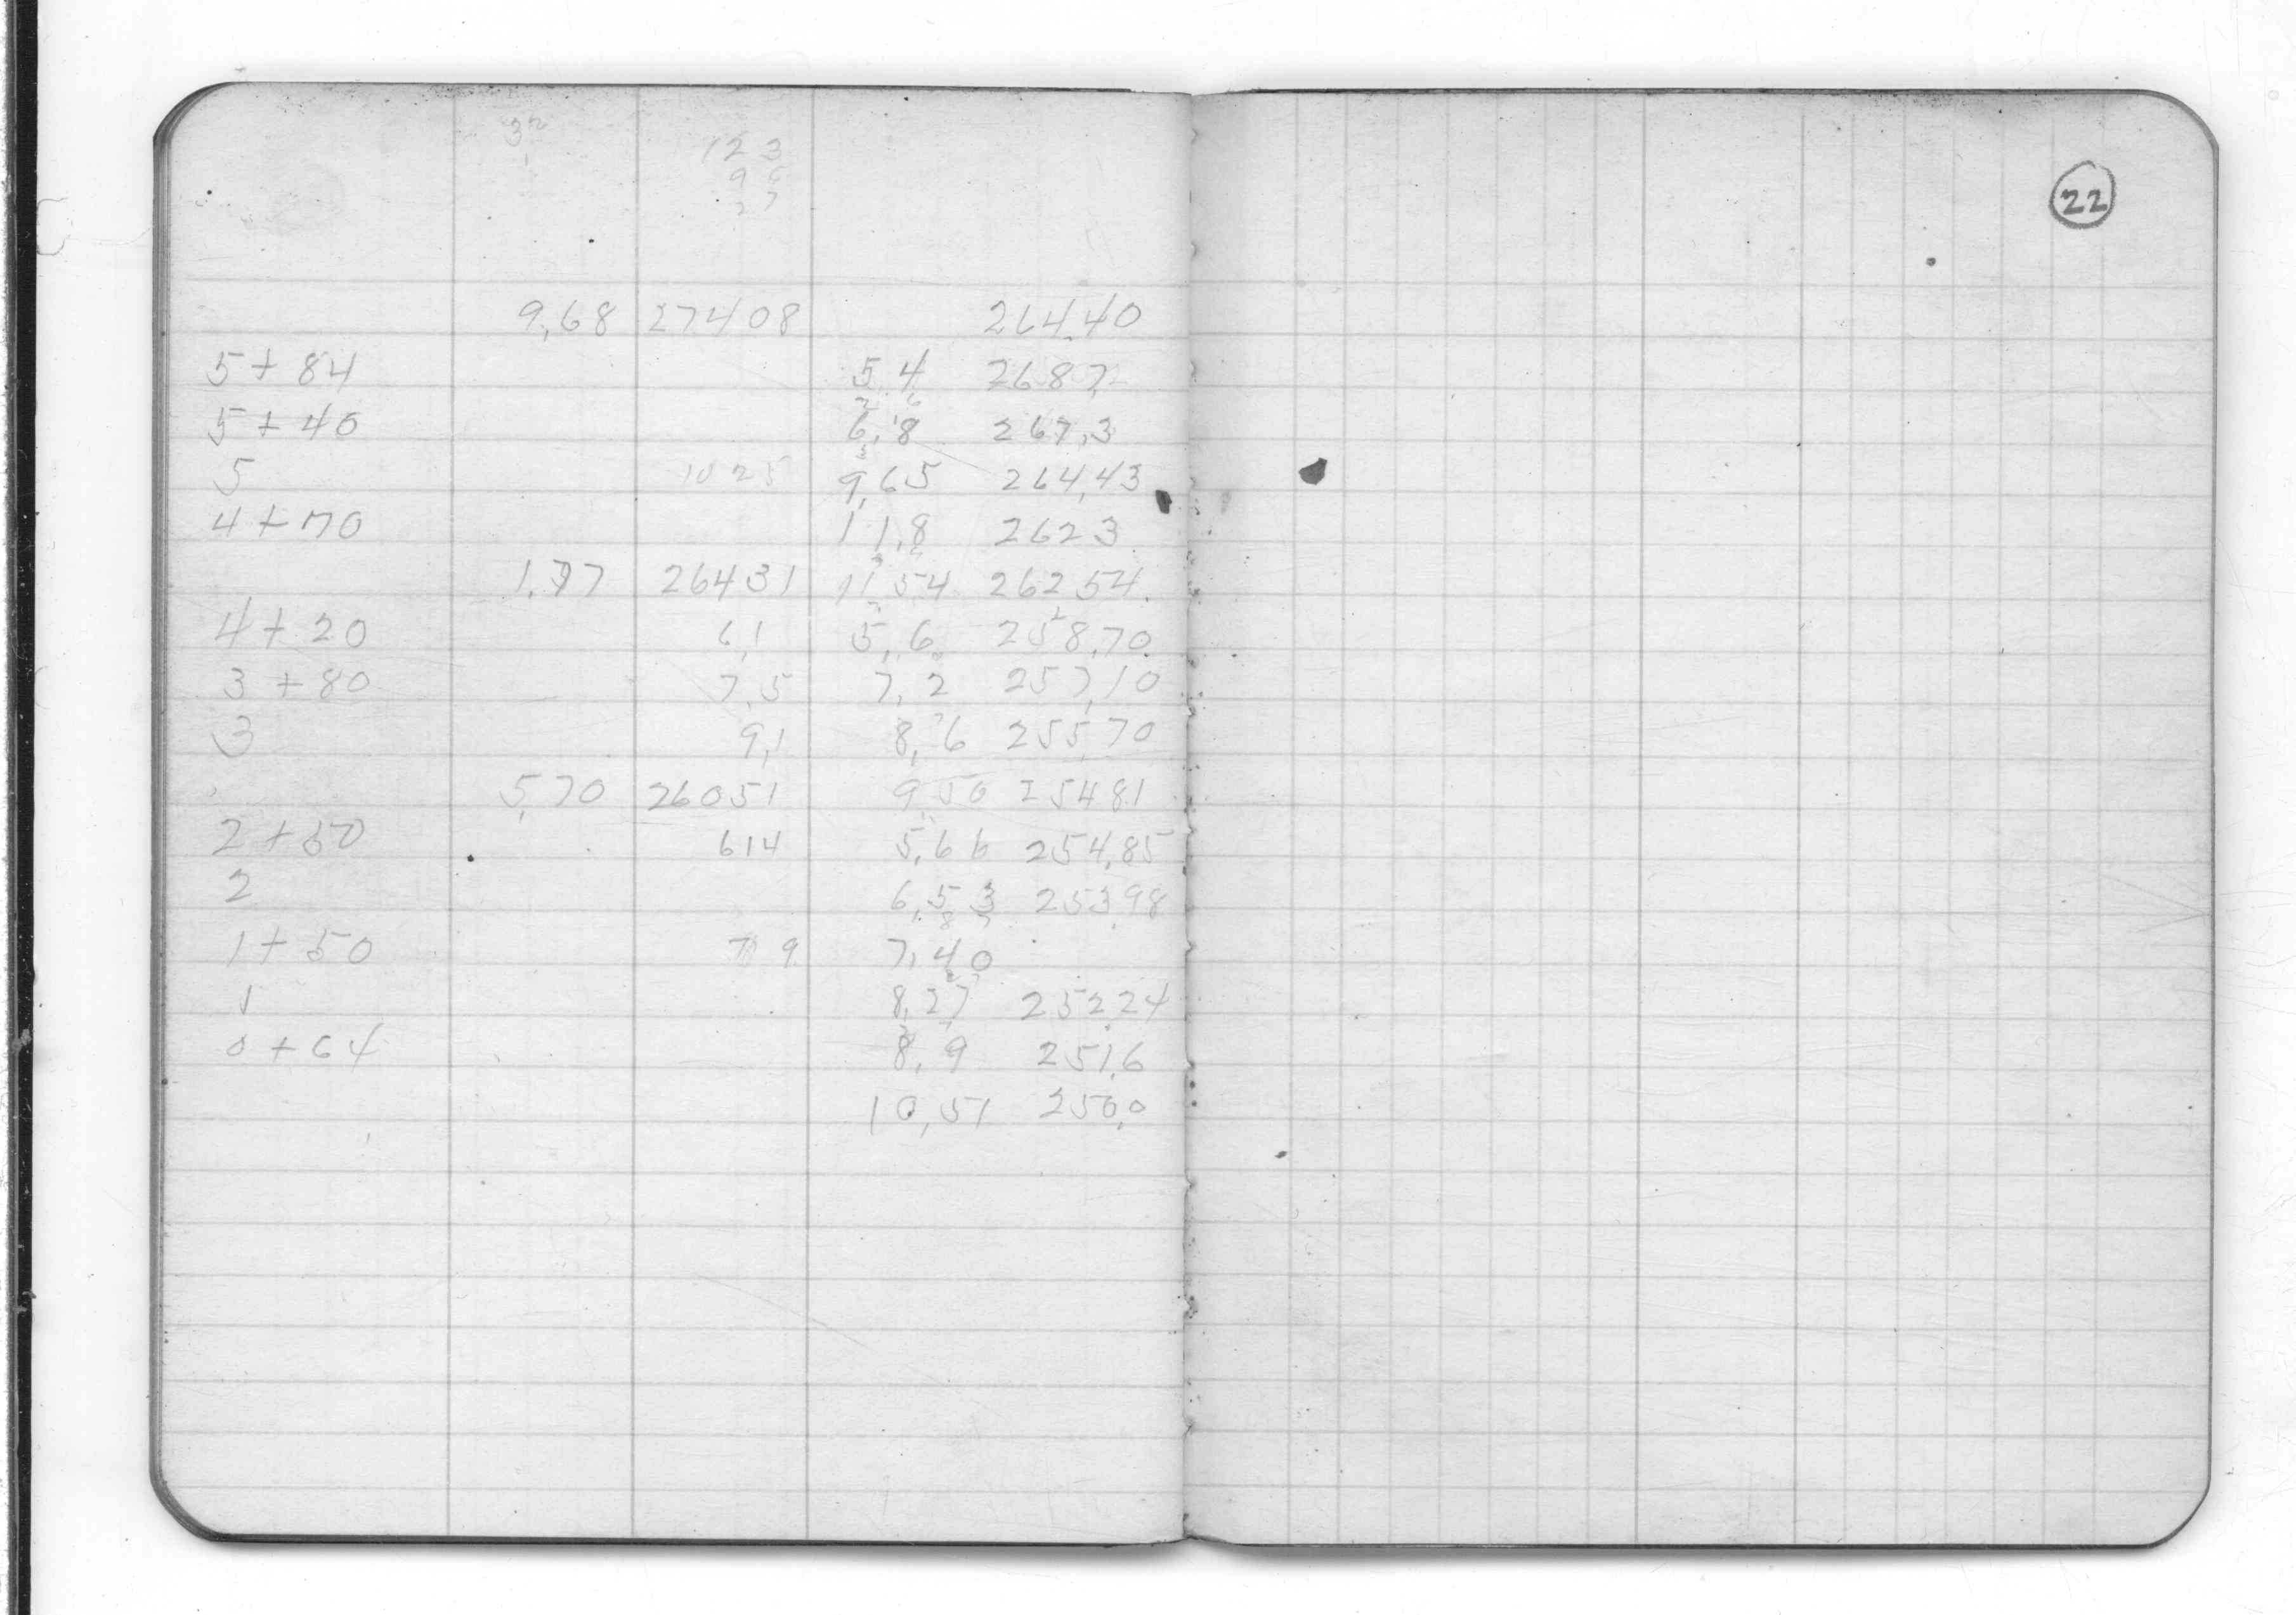 32
123
96
27
22
9,68 27408 264,40
5+84 5 4 2687
5+40 6,8 267,3
5 1025 9,65 264,43
4+70 11,8 2623
1,77 26431 11 54 26254
4+20 6,1 5,6 258,70
3+80 7,5 7,2 257,10
3 9,1 8,6 255,70
5,70 26051 9,50 25481
2+50 614 5,66 254,85
2 6,53 253,98
1+50 79 7,40
1 8,27 252,24
0+64 8,9 251,6
10,51 250,0